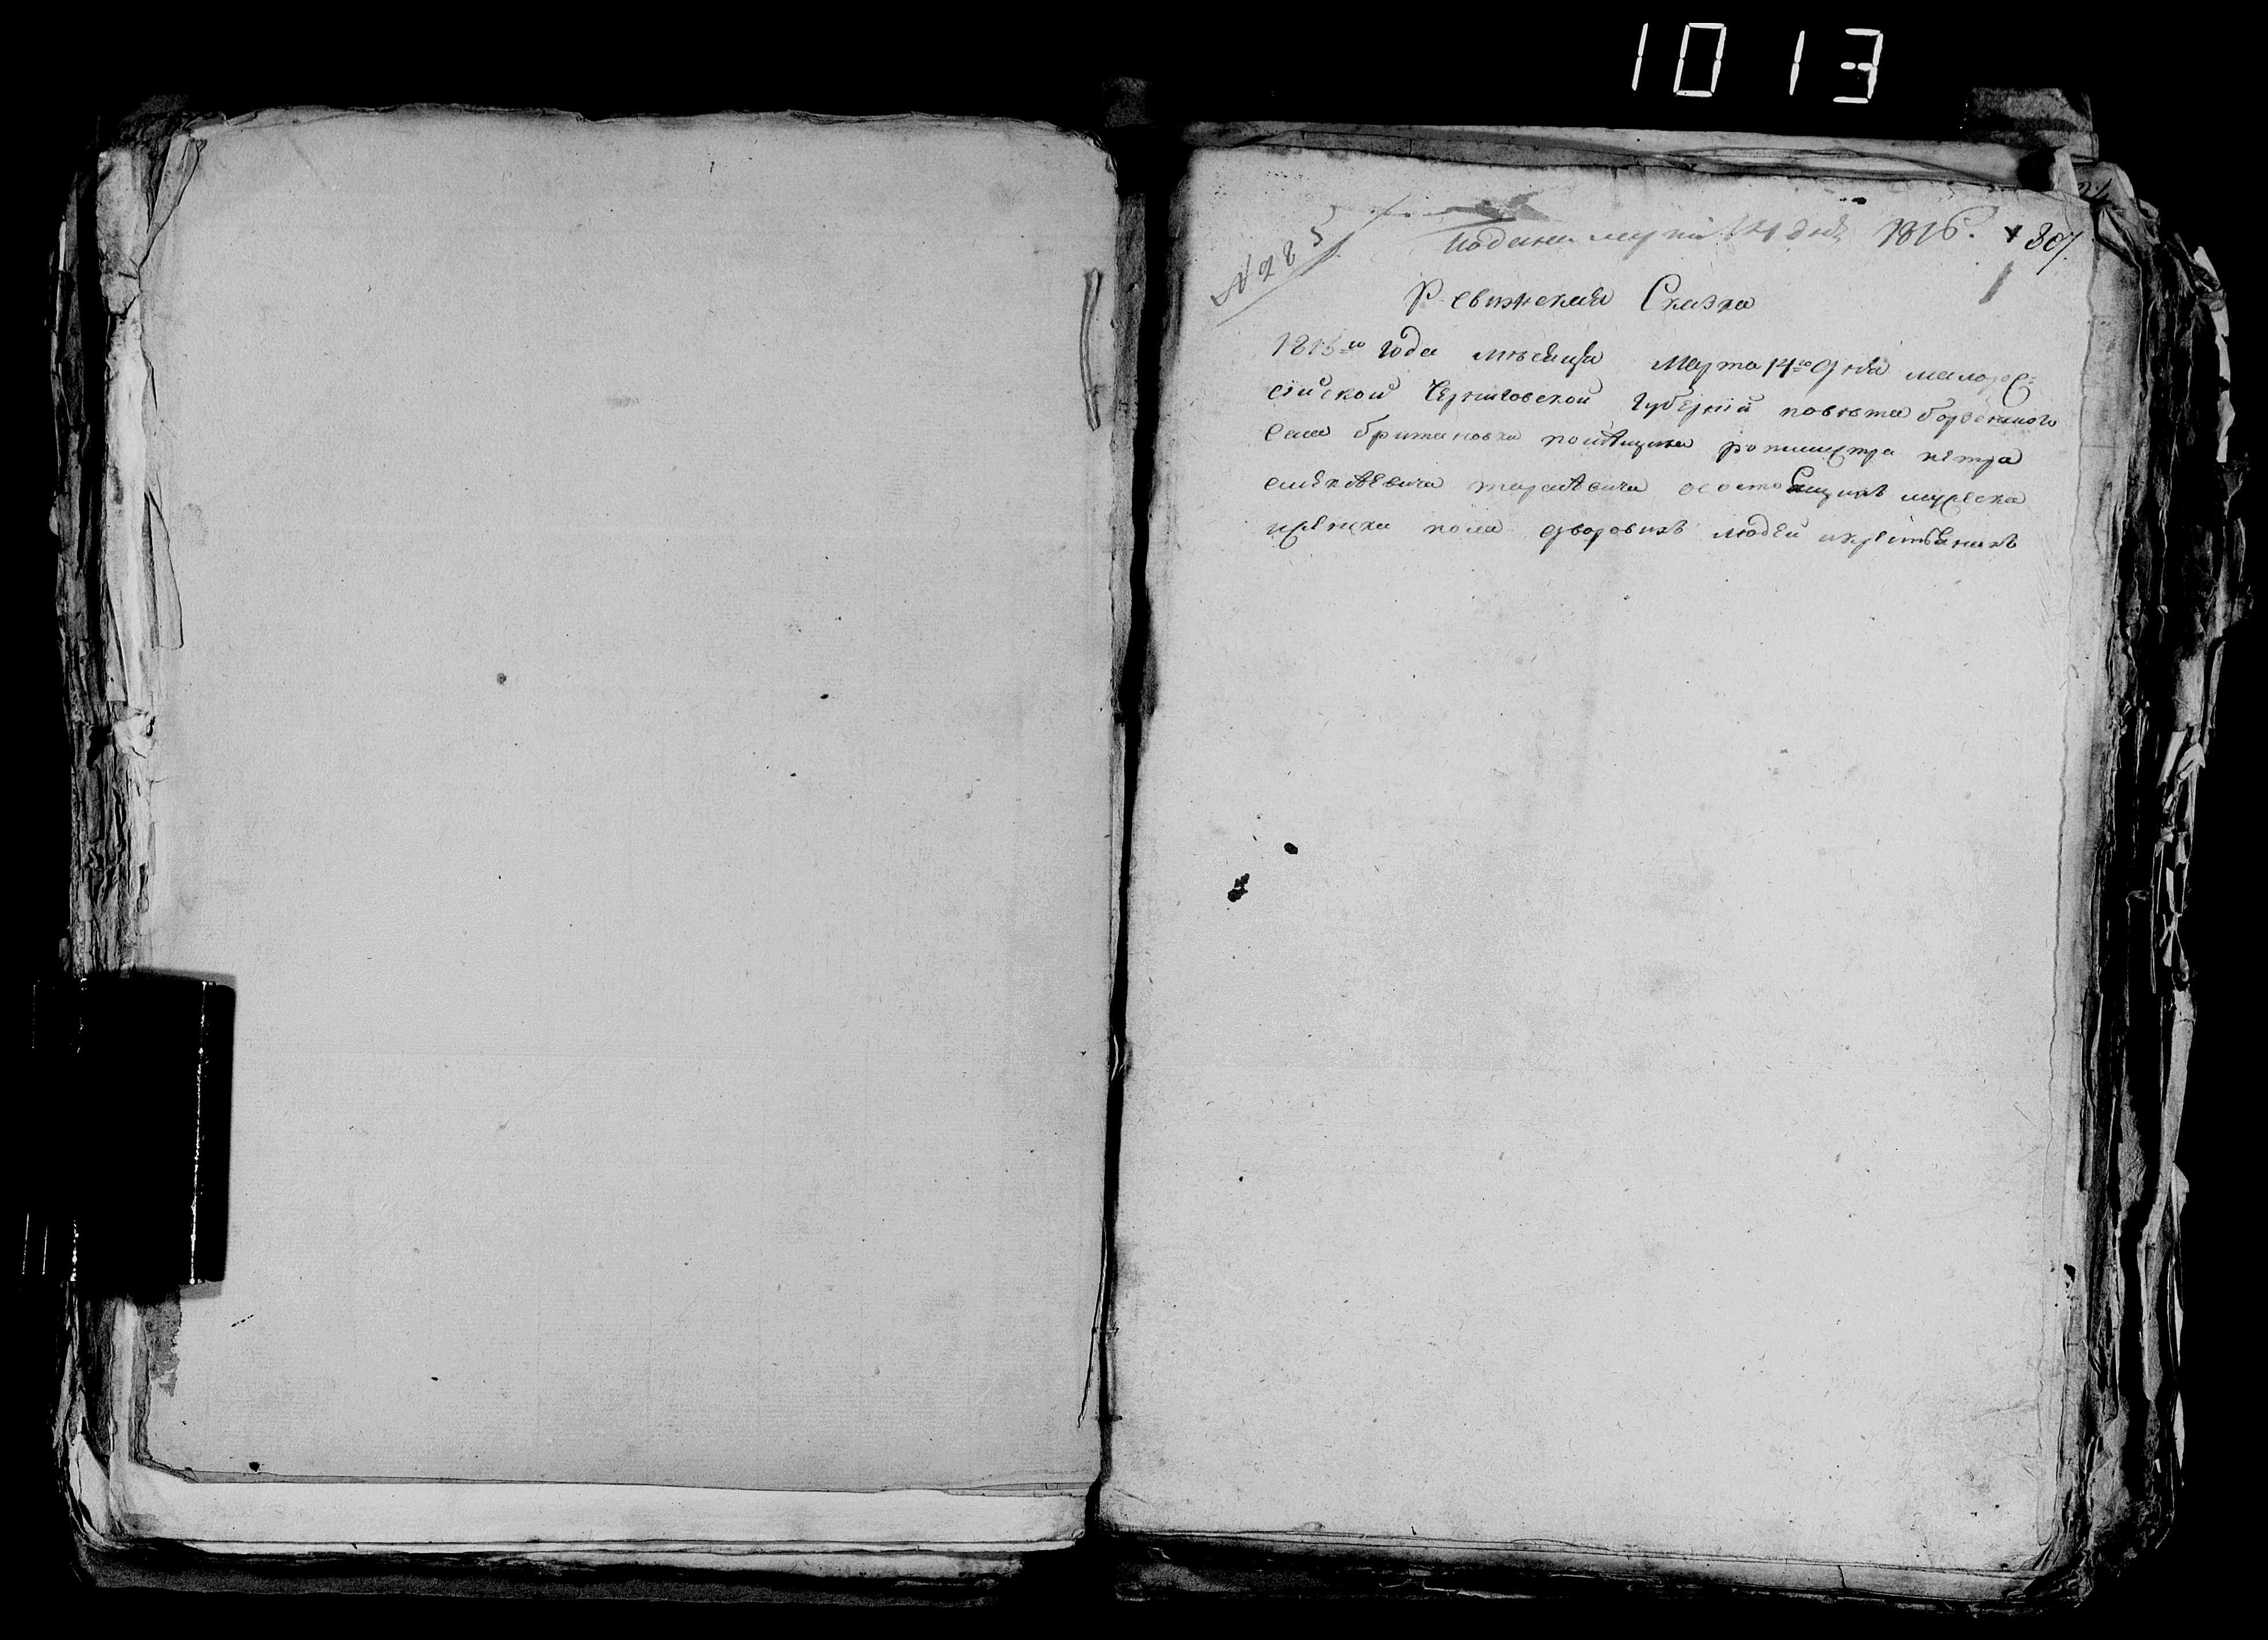 1013
№ 285
Подана марта 14 дня 1816. 307
1
Ревижская Сказка
1815го года мѣсяца Марта 14го дня малорос:
сійской Черниговской Губерніи повѣта борзенского
села британовки помѣщика ротмистра петра
тарасевича осостоящихъ мужеска
иженска пола дворовихъ людей икрестьянахъ